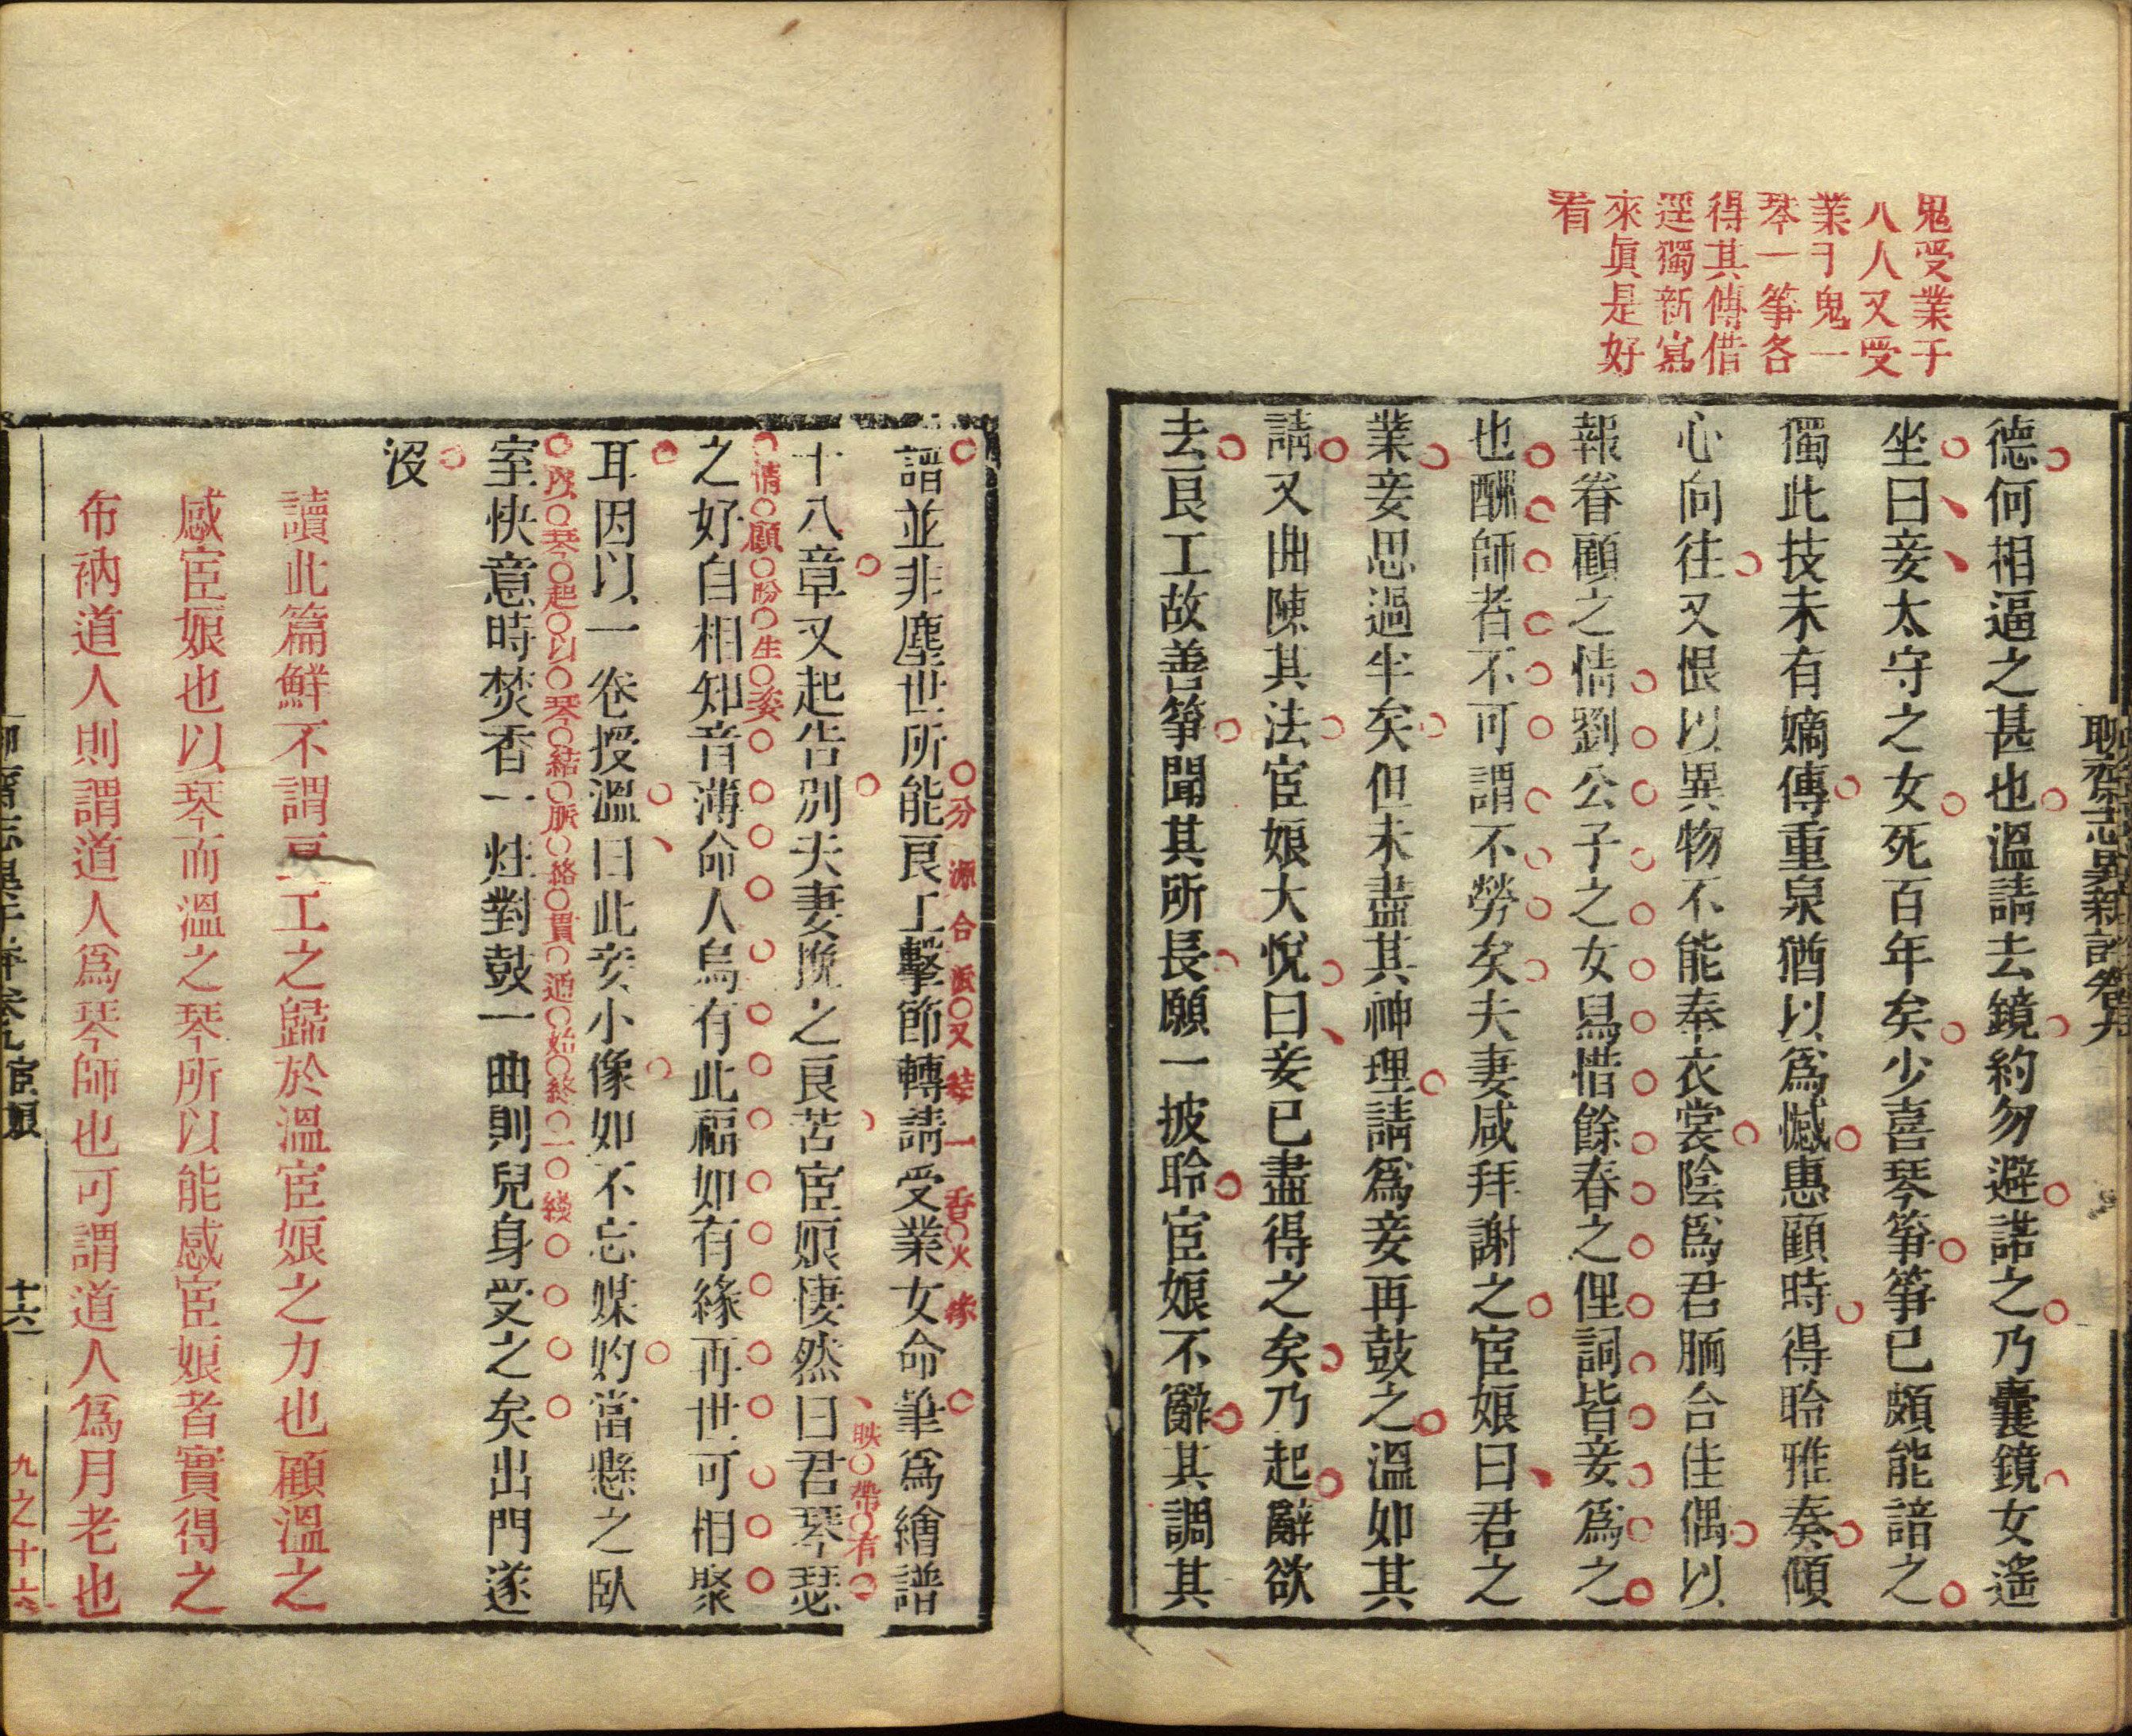 鬼受業于
人人又受
業于鬼一
琴一筝各
得其傳借
逕獨新寫
來眞是好
看
德何相逼之甚也溫請去鏡約勿避諾之乃囊鏡女遙
坐曰妾太守之女死百年矣少喜琴筝筝已頗能諳之
獨此技未有嫡傳重泉猶以爲憾惠顧時得聆雅奏傾
心向往又恨以異物不能奉衣裳陰爲君胹合佳偶以
報眷顧之情劉公子之女舄惜餘春之俚詞皆妾爲之
也酬師者不可謂不勞矣夫妻咸拜謝之宦娘曰君之
業妾思過半矣但未盡其神理請爲妾再鼓之溫如其
請又曲陳其法宦娘大悅曰妾已盡得之矣乃起辭欲
去良工故善筝聞其所長願一披聆宦娘不辭其調其
譜並非塵世所能良工擊節轉請受業女命筆爲繪譜
分源合派又結一香火緣
十八章又起告別夫妻挽之良苦宦娘悽然曰君琴瑟
映帶有
之好自相知音薄命人烏有此福如有緣再世可相聚
情顧盼生姿
耳因以一卷授溫曰此妾小像如不忘媒妁當懸之臥
室快意時焚香一炷對鼓一曲則兒身受之矣出門遂
琴起以琴結脈絡貫通始終一綫
沒
讀此篇鮮不謂良工之歸於溫宦娘之力也顧溫之
感宦娘也以琴而溫之琴所以能感宦娘者實得之
布衲道人則謂道人爲琴師也可謂道人爲月老也
宦娘
十六
九之十六